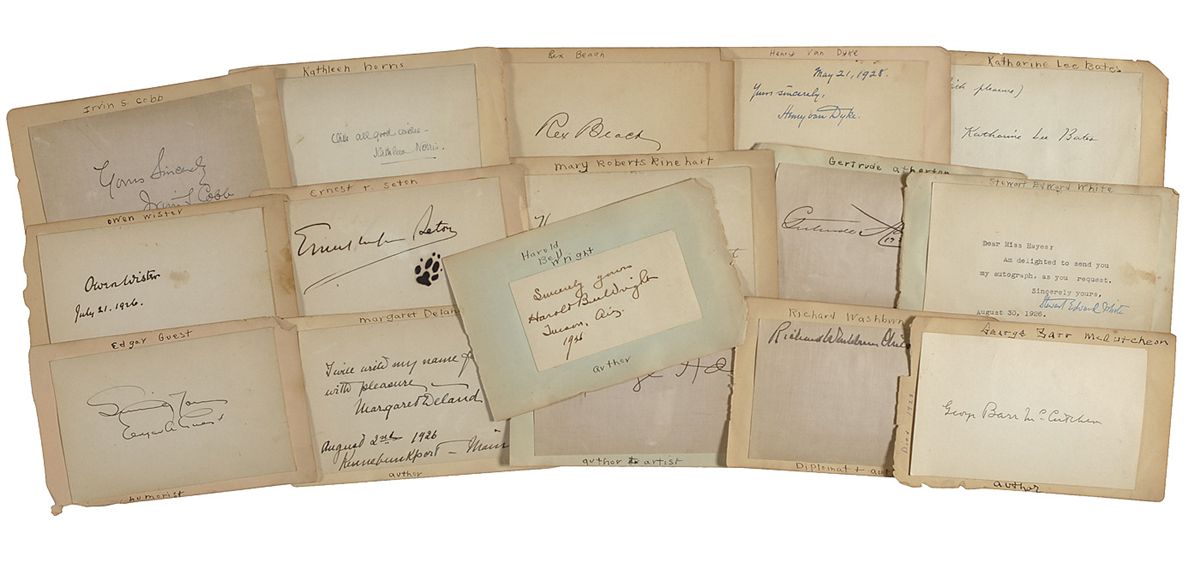 Irvin S. Cobb
Yours Sincerely
Irvin S Cobb
Kathleen Norris
With all good wishes -
Kathleen Norris.
Rex Beach
Rex Beach
Henry Van Dyke
May 21, 1928.
Yours sincerely,
Henry van Dyke.
Katharine Lee Bates
(with pleasure)
Katharine Lee Bates
Owen Wister
Owen Wister
July 21. 1926.
Ernest T. Seton
Ernest Thompson Seton
Mary Roberts Rinehart
Harold
Bell
Wright
Sincerely yours
Harold Bell Wright
Tucson, Ariz.
1926
author
Gertrude Atherton
Gertrude
Stewart Edward White
Dear Miss Hayes:
Am delighted to send you
my autograph, as you request.
Sincerely yours,
Stewart Edward White
August 30, 1926.
Edgar Guest
Sincerely Yours
Edgar A Guest
humorist
Margaret Deland
I will write my name
with pleasure
Margaret Deland
August 2nd 1926
Kennebunkport - Maine
author
author & artist
Richard Washburn
Richard Washburn Child
Diplomat + aut
George Barr McCutcheon
George Barr McCutcheon
Died 1928
author